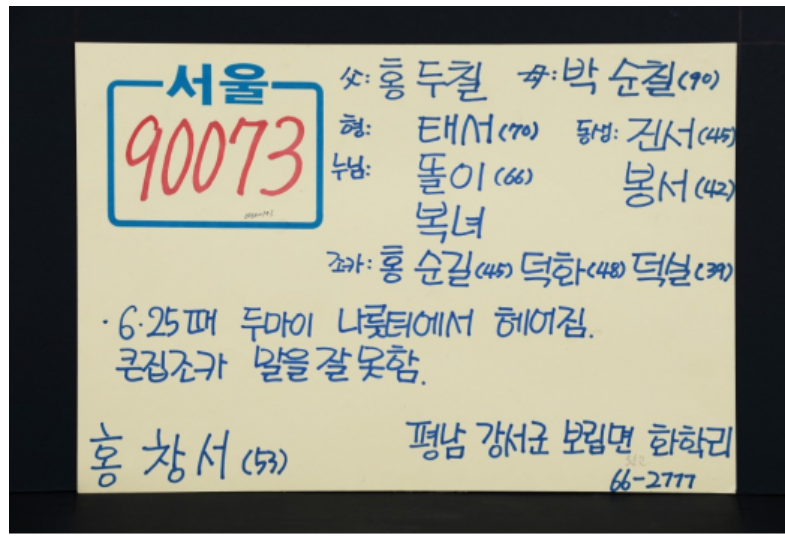 서울
90073
父: 홍두칠 母: 박순칠(90)
형: 태서(70) 동생: 진서(45)
누님: 똘이(66) 봉서(42)
복녀
조카: 홍순길(45) 덕화(48) 덕실(39)
·6·25때 두마이 나룻터에서 헤어짐.
큰집조카 말을 잘 못함.
홍창서(53)
평남 강서군 보립면 화학리
66-2777